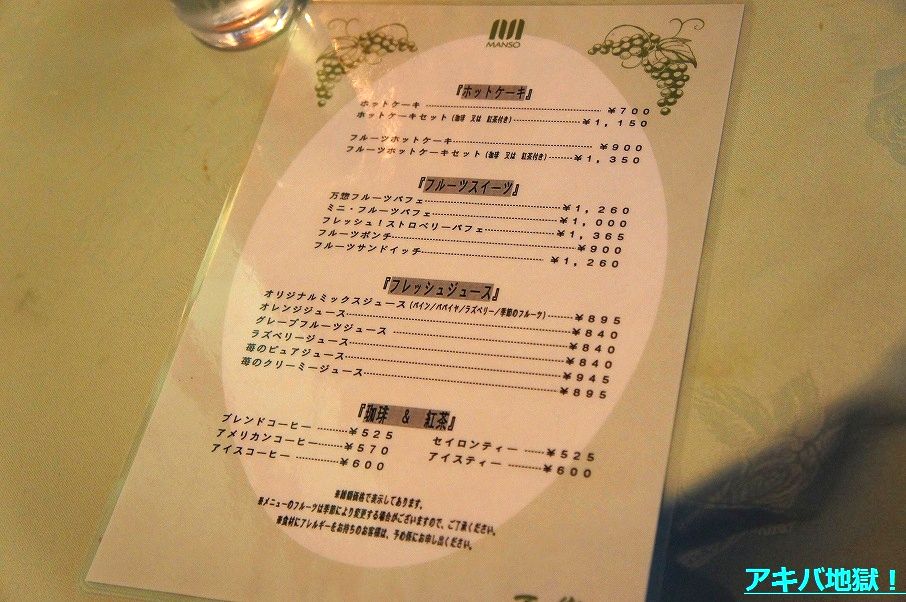 MANSO
『ホットケーキ』
ホットケーキ ¥700
ホットケーキセット (珈琲 又は 紅茶付き) ¥1,150
フルーツホットケーキ ¥900
フルーツホットケーキセット (珈琲 又は 紅茶付き) ¥1,350
『フルーツスイーツ』
万惣フルーツパフェ ¥1,260
ミニ・フルーツパフェ ¥1,000
フレッシュ!ストロベリーパフェ ¥1,365
フルーツポンチ ¥900
フルーツサンドイッチ ¥1,260
『フレッシュジュース』
オリジナルミックスジュース (パイン/パパイヤ/ラズベリー/季節のフルーツ) ¥895
オレンジジュース ¥840
グレープフルーツジュース ¥840
ラズベリージュース ¥840
苺のピュアジュース ¥945
苺のクリーミージュース ¥895
『珈琲 & 紅茶』
ブレンドコーヒー ¥525 セイロンティー ¥525
アメリカンコーヒー ¥570 アイスティー ¥600
アイスコーヒー ¥600
価格で表示してあります。
※メニューのフルーツは季節により変更する場合がございますので、ご了承ください。
※食材にアレルギーをお持ちのお客様は、予め係にお申し出ください。
アキバ地獄!